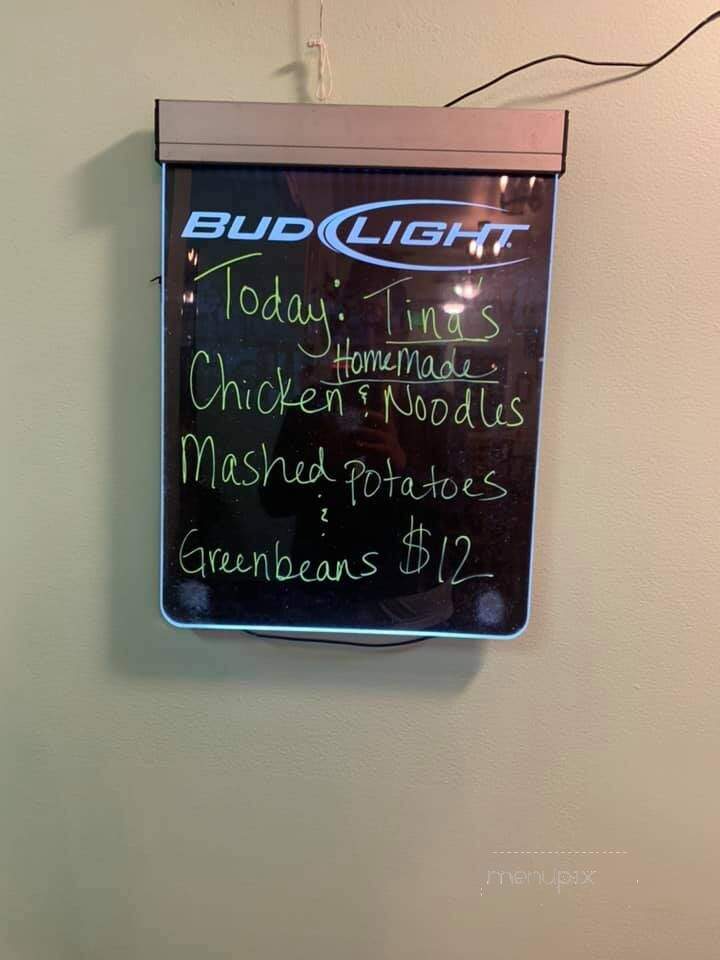 BUD LIGHT.
Today: Tina's
HomeMade
Chicken & Noodles
Mashed potatoes
&
Greenbeans $12
menupix